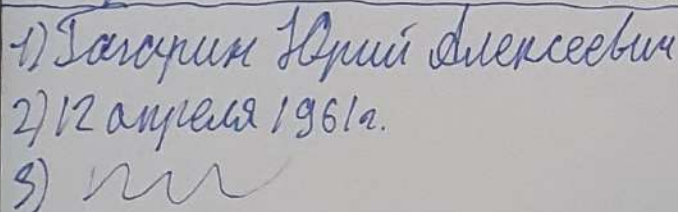 1) Гагарин Юрий Алексеевич
2) 12 апреля 1961г.
3)